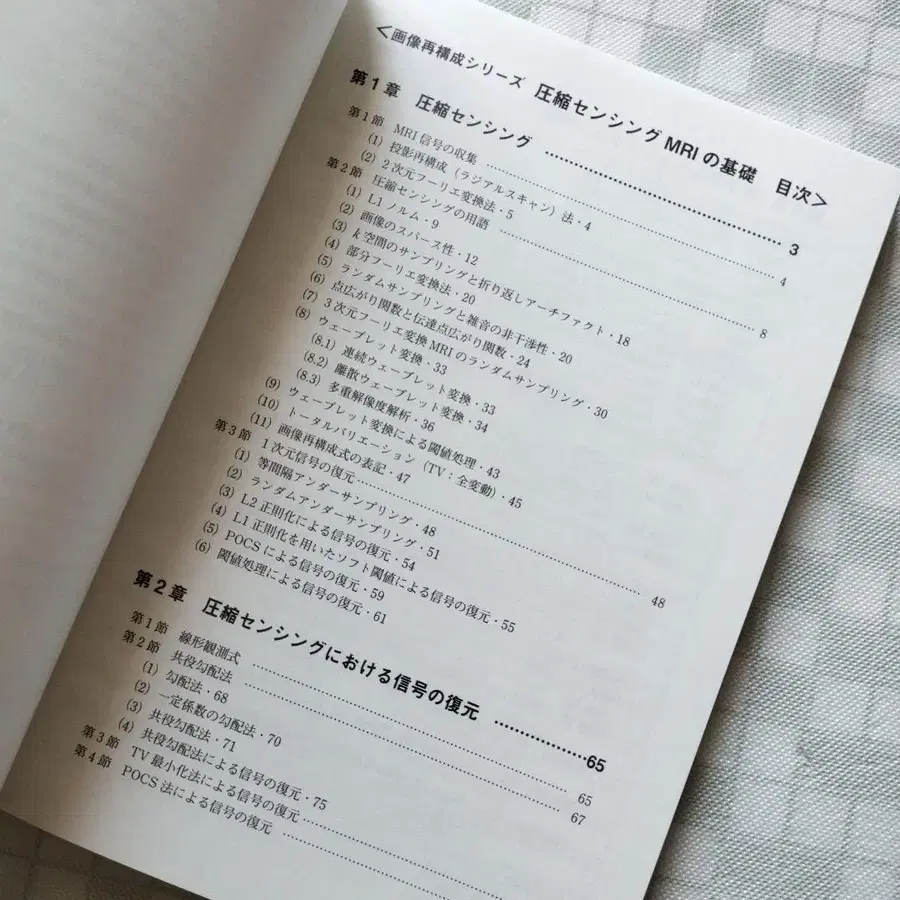 ＜画像再構成シリーズ 圧縮センシング MRI の基礎 目次＞
第1章 圧縮センシング ……………… 3
第1節 MRI 信号の収集 ……………… 4
(1) 投影再構成（ラジアルスキャン）法・4
(2) 2次元フーリエ変換法・5
第2節 圧縮センシングの用語 ……………… 8
(1) L1 ノルム・9
(2) 画像のスパース性・12
(3) k 空間のサンプリングと折り返しアーチファクト・18
(4) 部分フーリエ変換法・20
(5) ランダムサンプリングと雑音の非干渉性・20
(6) 点広がり関数と伝達点広がり関数・24
(7) 3次元フーリエ変換 MRI のランダムサンプリング・30
(8) ウェーブレット変換・33
(8.1) 連続ウェーブレット変換・33
(8.2) 離散ウェーブレット変換・34
(8.3) 多重解像度解析・36
(9) ウェーブレット変換による閾値処理・43
(10) トータルバリエーション（TV：全変動）・45
(11) 画像再構成式の表記・47
第3節 1次元信号の復元 ……………… 48
(1) 等間隔アンダーサンプリング・48
(2) ランダムアンダーサンプリング・51
(3) L2 正則化による信号の復元・54
(4) L1 正則化を用いたソフト閾値による信号の復元・55
(5) POCS による信号の復元・59
(6) 閾値処理による信号の復元・61
第2章 圧縮センシングにおける信号の復元 ……………… 65
第1節 線形観測式 ……………… 65
第2節 共役勾配法 ……………… 67
(1) 勾配法・68
(2) 一定係数の勾配法・70
(3) 共役勾配法・71
(4) 共役勾配法による信号の復元・75
第3節 TV 最小化法による信号の復元 ………………
第4節 POCS 法による信号の復元 ………………